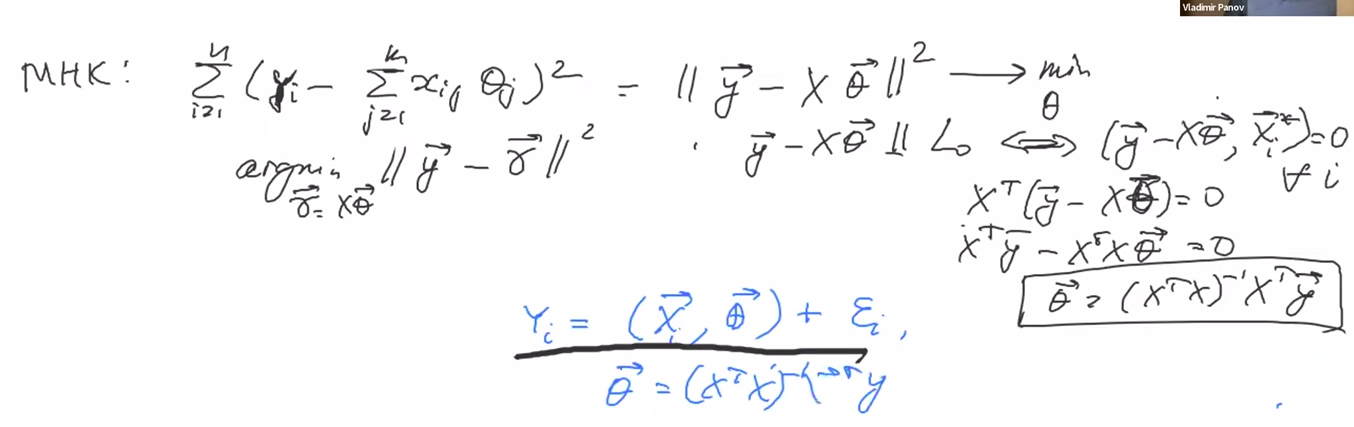 Vladimir Panov
МНК: ∑_{i=1}^{n} (y_i − ∑_{j=1}^{k} x_{ij} θ_j)² = ‖ y⃗ − X θ⃗ ‖² → min_θ
argmin_{γ⃗ = Xθ⃗} ‖ y⃗ − γ⃗ ‖² y⃗ − Xθ⃗ ⊥ L₀ ⇔ (y⃗ − Xθ⃗, x⃗_i*) = 0 ∀ i
X^T (y⃗ − Xθ⃗) = 0
X^T y⃗ − X^T X θ⃗ = 0
θ⃗ = (X^T X)^{-1} X^T y⃗
Y_i = (X⃗_i, θ⃗) + ε_i,
θ⃗ = (X^T X)^{-1} y